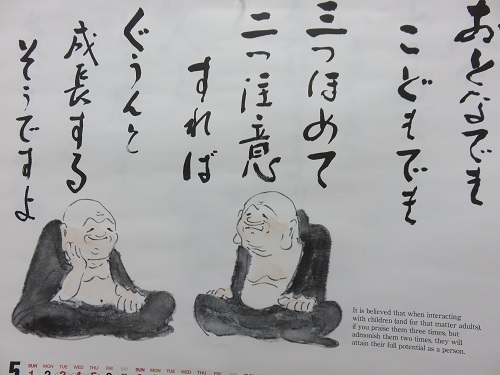 おとなでも
こどもでも
三つほめて
二つ注意
すれば
ぐうんと
成長する
そうですよ
It is believed that when interacting
with children (and for that matter adults),
if you praise them three times, but
admonish them two times, they will
attain their full potential as a person.
5
SUN MON TUE WED THU FRI SAT SUN MON TUE WED THU FRI SAT SUN MON TUE WED THU FRI